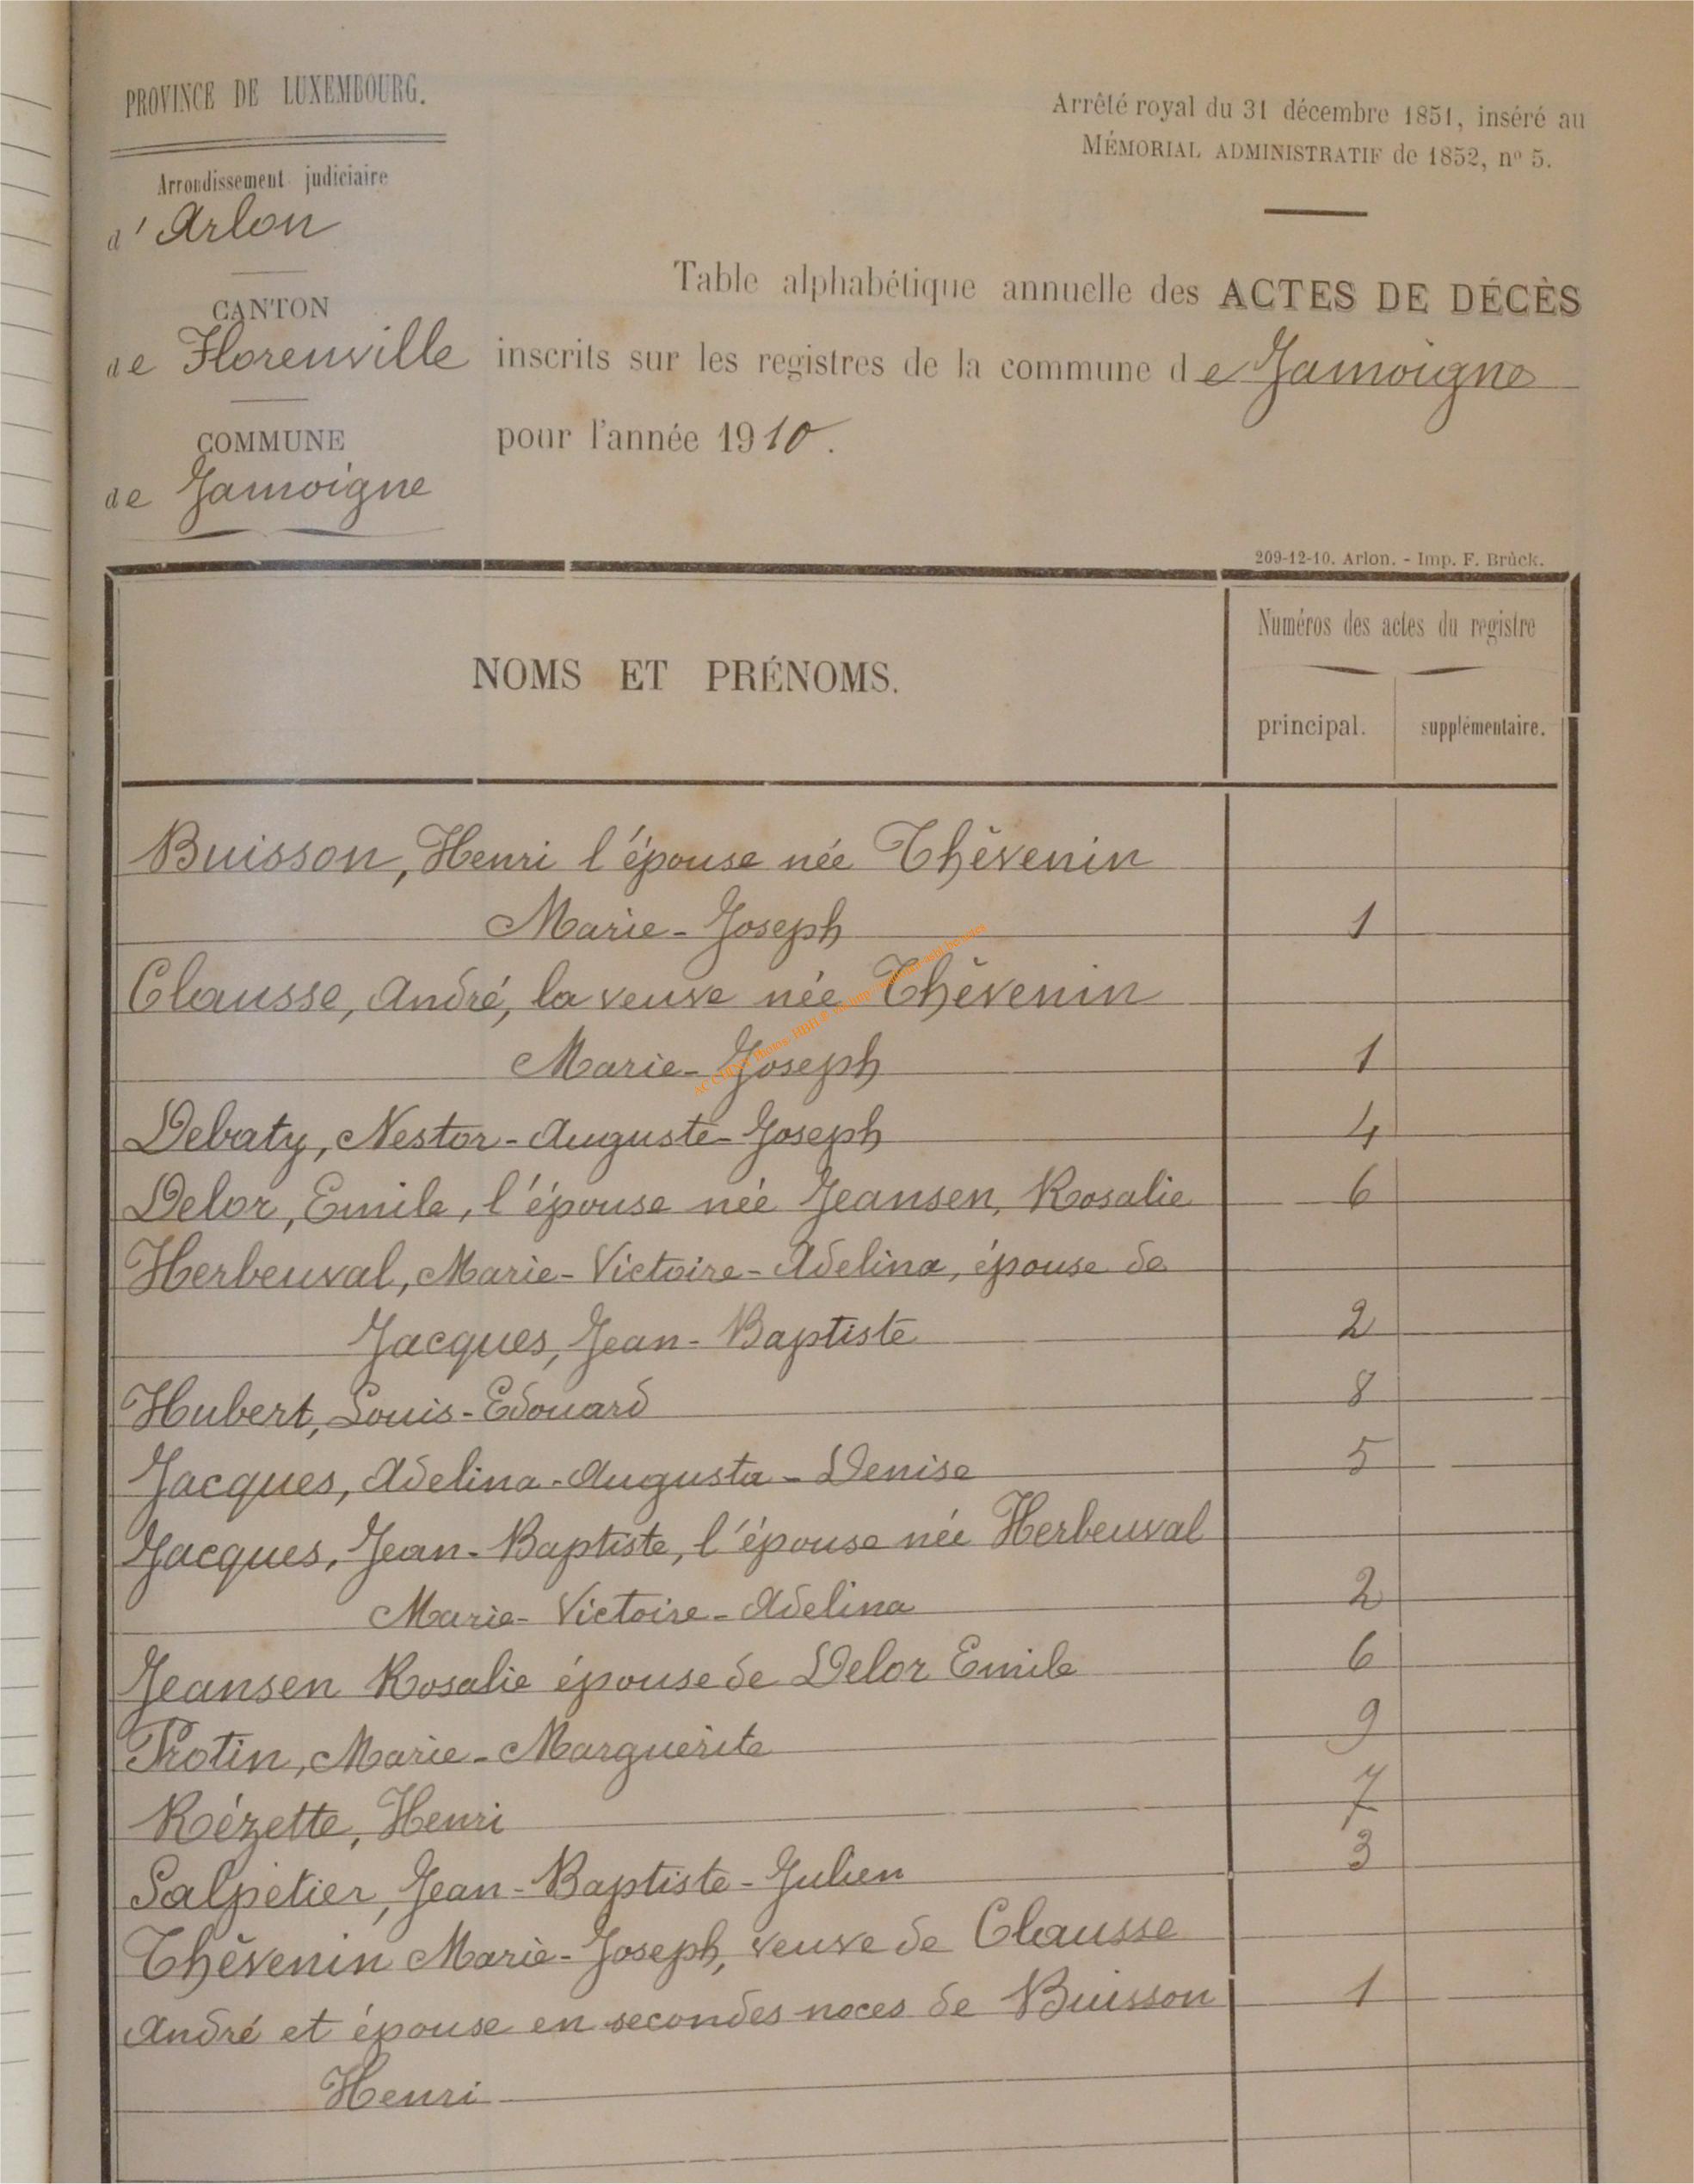 PROVINCE DE LUXEMBOURG.
Arrondissement judiciaire
d'Arlon
CANTON
de Florenville
COMMUNE
de Jamoigne
Arrêté royal du 31 décembre 1851, inséré au
MÉMORIAL ADMINISTRATIF de 1852, nº 5.
Table alphabétique annuelle des ACTES DE DÉCÈS
inscrits sur les registres de la commune de Jamoigne
pour l'année 1910.
209-12-10. Arlon. - Imp. F. Brück.
NOMS ET PRÉNOMS.
Numéros des actes du registre
principal. supplémentaire.
Buisson, Henri l'épouse née Thèvenin
Marie-Joseph 1
Clausse, André, la veuve née Thèvenin
Marie-Joseph 1
Debaty, Nestor-Auguste-Joseph 4
Delor, Emile, l'épouse née Jeansen, Rosalie 6
Herbeuval, Marie-Victoire-Adelina, épouse de
Jacques, Jean-Baptiste 2
Hubert, Louis-Edouard 8
Jacques, Adelina-Augusta-Denise 5
Jacques, Jean-Baptiste, l'épouse née Herbeuval
Marie-Victoire-Adelina 2
Jeansen Rosalie épouse de Delor Emile 6
Protin, Marie-Marguerite 9
Rézette, Henri 7
Salpetier, Jean-Baptiste-Julien 3
Thèvenin Marie-Joseph, veuve de Clausse
André et épouse en secondes noces de Buisson 1
Henri